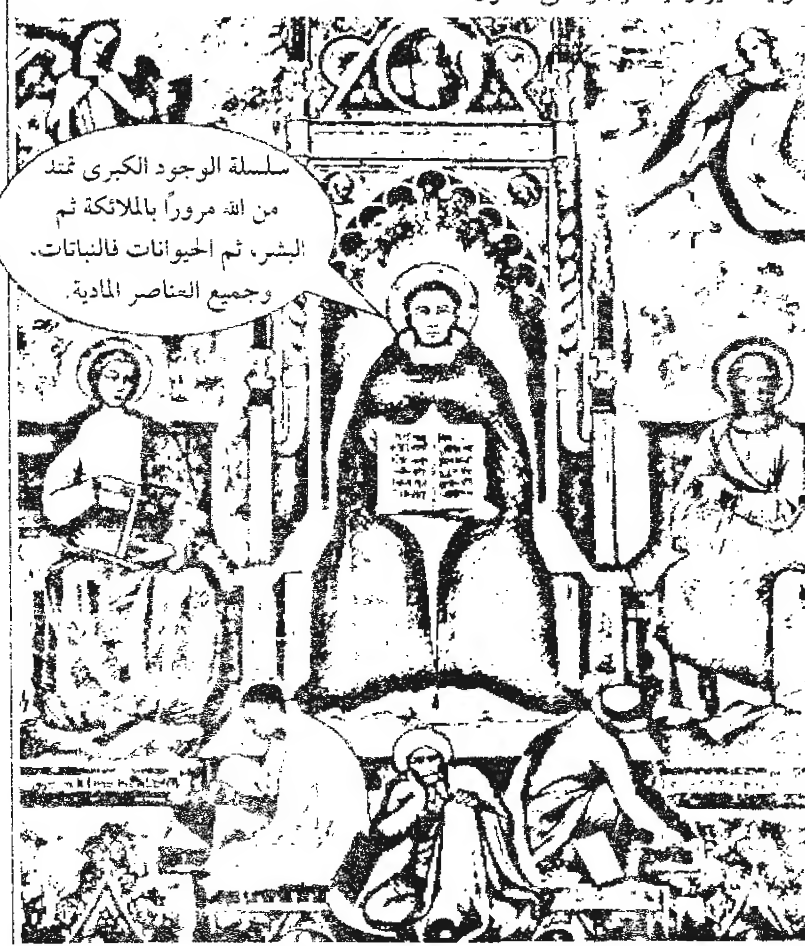 سلسلة الوجود الكبرى تمتد
من الله مرورًا بالملائكة ثم
البشر، ثم الحيوانات فالنباتات،
وجميع العناصر المادية.